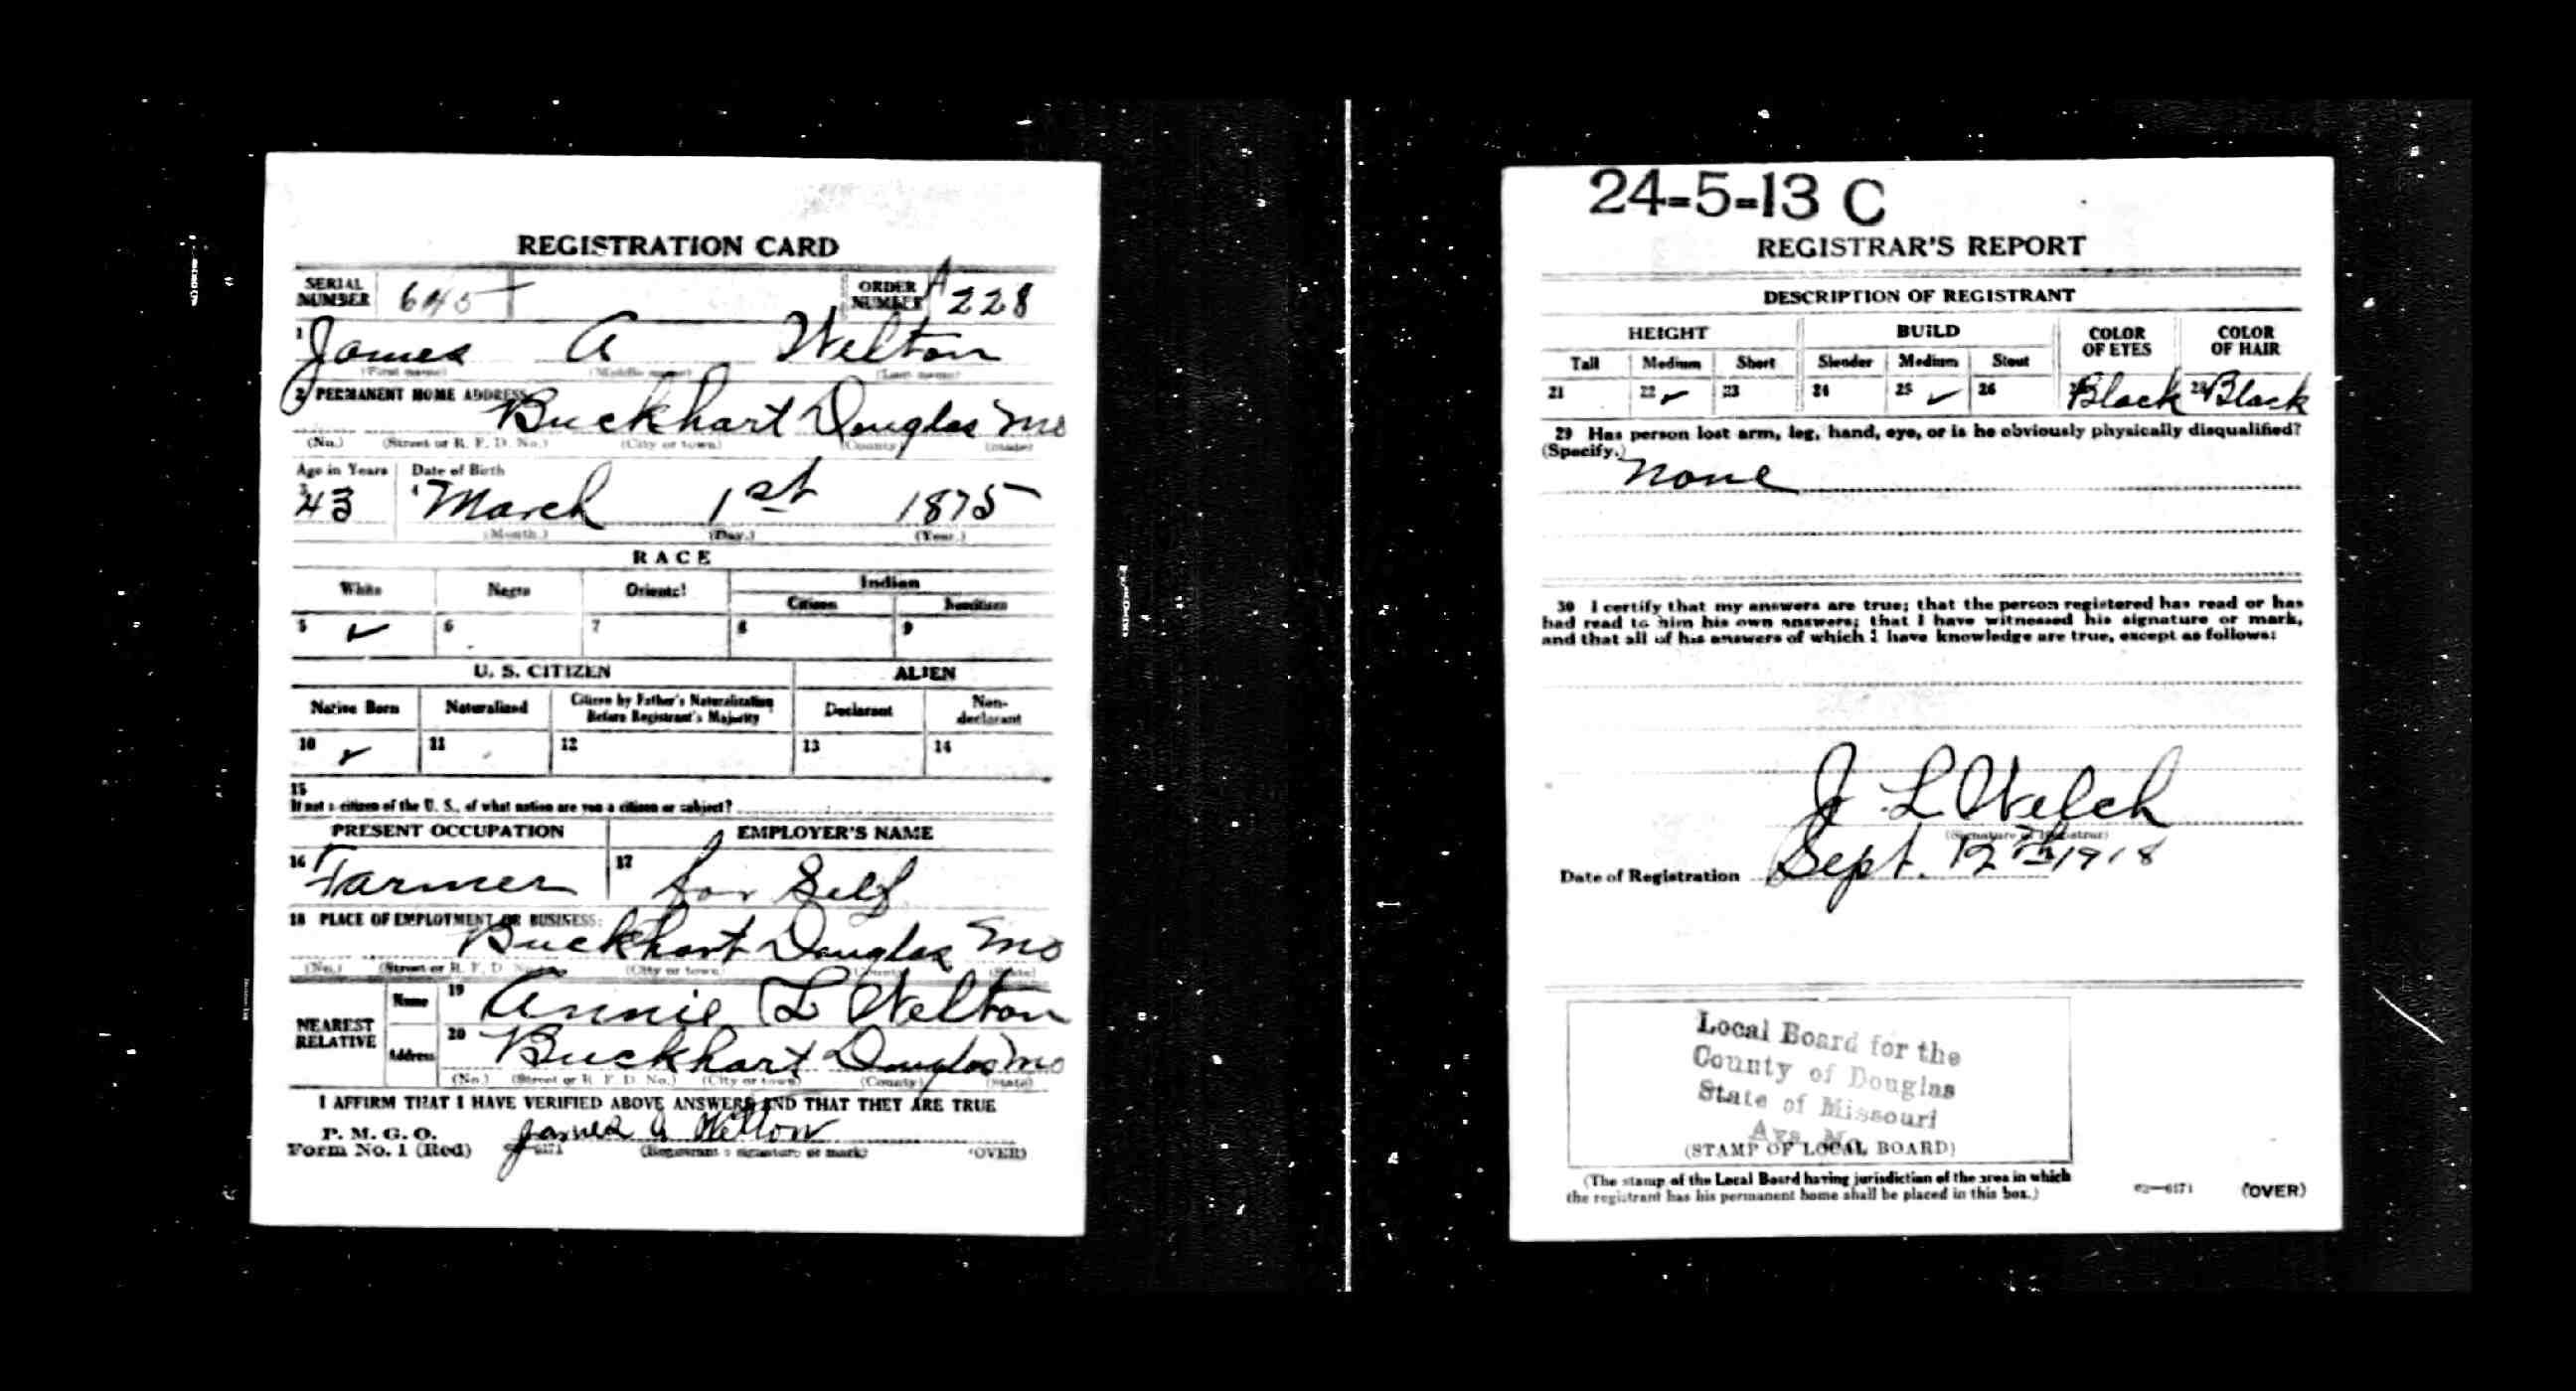 REGISTRATION CARD
SERIAL NUMBER 645 ORDER NUMBER A 228
1 James A Welton
(First name) (Middle name) (Last name)
2 PERMANENT HOME ADDRESS
Buckhart Douglas Mo
(No.) (Street or R. F. D. No.) (City or town) (County) (State)
Age in Years Date of Birth
3 43 4 March 1st 1875
(Month.) (Day.) (Year.)
RACE
White Negro Oriental Indian
Citizen Noncitizen
5 ✓ 6 7 8 9
U. S. CITIZEN ALIEN
Native Born Naturalized Citizen by Father's Naturalization Before Registrant's Majority Declarant Non-declarant
10 ✓ 11 12 13 14
15
If not a citizen of the U. S., of what nation are you a citizen or subject?
PRESENT OCCUPATION EMPLOYER'S NAME
16 Farmer 17 for Self
18 PLACE OF EMPLOYMENT OR BUSINESS:
Buckhart Douglas Mo
(No.) (Street or R. F. D. No.) (City or town) (County) (State)
NEAREST RELATIVE
Name 19 Annie L Welton
Address 20 Buckhart Douglas Mo
(No.) (Street or R. F. D. No.) (City or town) (County) (State)
I AFFIRM THAT I HAVE VERIFIED ABOVE ANSWERS AND THAT THEY ARE TRUE
P. M. G. O.
Form No. 1 (Red) James A Welton
(Registrant's signature or mark) (OVER)
24-5-13 C
REGISTRAR'S REPORT
DESCRIPTION OF REGISTRANT
HEIGHT BUILD COLOR OF EYES COLOR OF HAIR
Tall Medium Short Slender Medium Stout
21 22 ✓ 23 24 25 ✓ 26 27 Black 28 Black
29 Has person lost arm, leg, hand, eye, or is he obviously physically disqualified?
(Specify.) none
30 I certify that my answers are true; that the person registered has read or has
had read to him his own answers; that I have witnessed his signature or mark,
and that all of his answers of which I have knowledge are true, except as follows:
J L Welch
(Signature of Registrar)
Date of Registration Sept. 12th 1918
Local Board for the
County of Douglas
State of Missouri
Ava, Mo.
(STAMP OF LOCAL BOARD)
(The stamp of the Local Board having jurisdiction of the area in which
the registrant has his permanent home shall be placed in this box.)
(OVER)